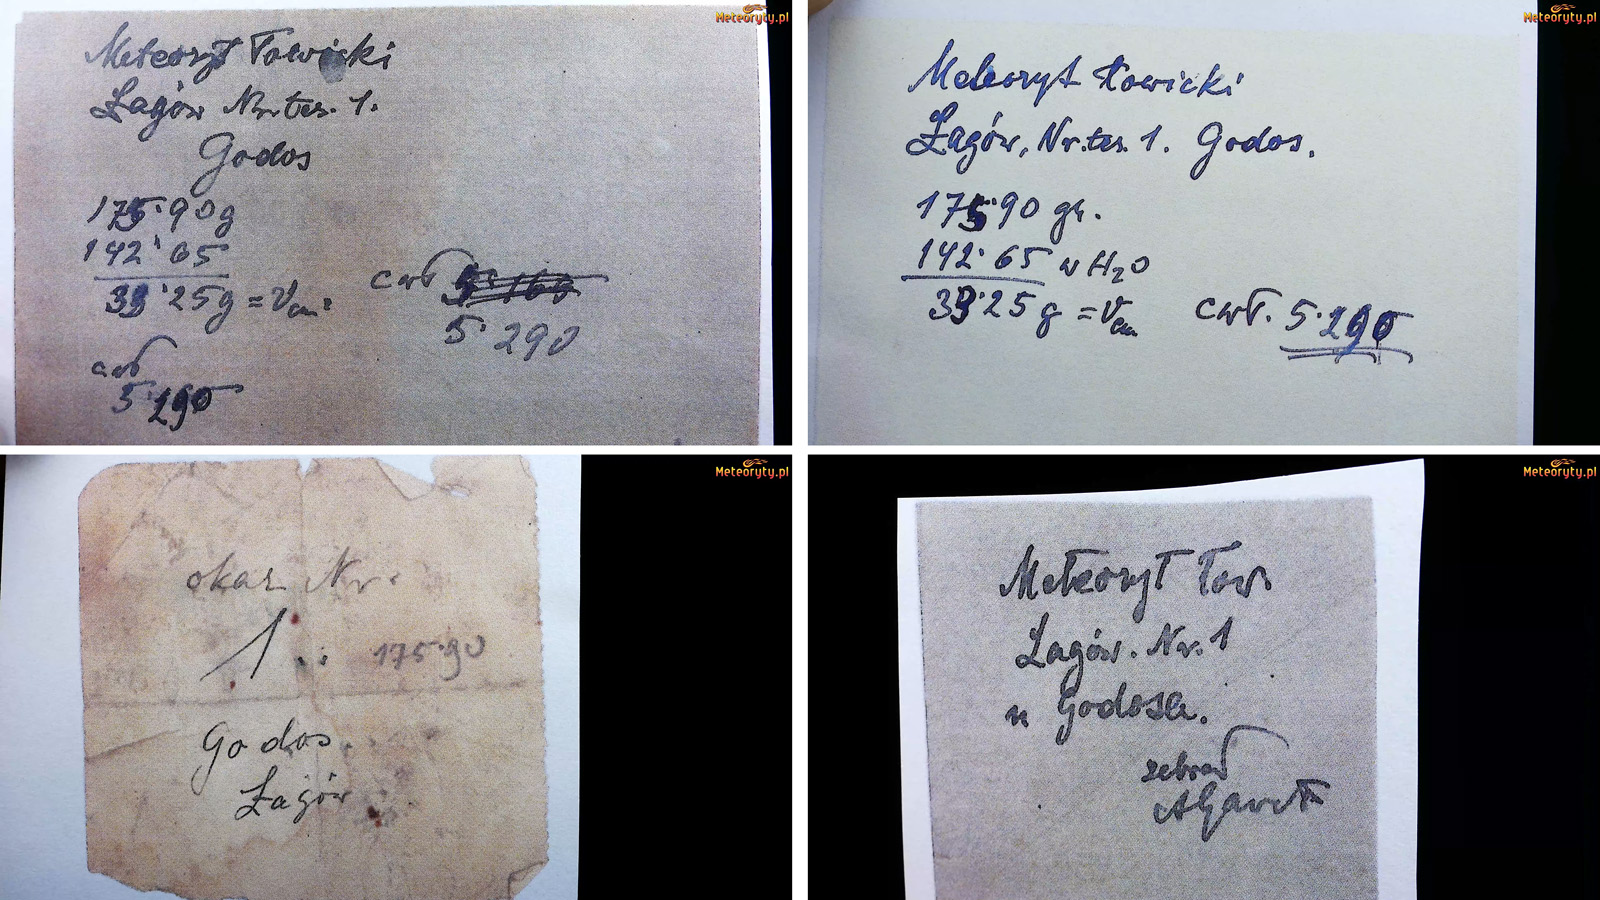 Meteoryt Łowicki
Łagów Nr. ter. 1.
Godos
175·90g
142·65
33·25g = V cm³
cwł
5·290
cwł
5·290
Meteoryty.pl
Meteoryt Łowicki
Łagów, Nr. ter. 1. Godos.
175·90 gr.
142·65 w H₂O
33·25 g = V cm
cwł. 5·290
Meteoryty.pl
okaz Nr.
1
175·90
Godos.
Łagów
Meteoryty.pl
Meteoryt Łow.
Łagów. Nr. 1
u Godosa.
zebrał
Meteoryty.pl